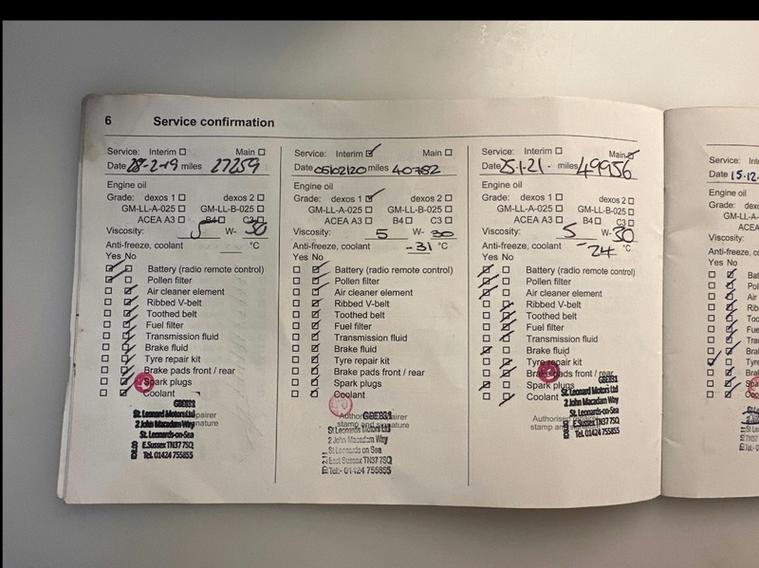 6 Service confirmation
Service: Interim Main
Date 28-2-19 miles 27259
Engine oil
Grade: dexos 1 dexos 2
GM-LL-A-025 GM-LL-B-025
ACEA A3 B4 C3
Viscosity: 5 W- 30
Anti-freeze, coolant °C
Yes No
Battery (radio remote control)
Pollen filter
Air cleaner element
Ribbed V-belt
Toothed belt
Fuel filter
Transmission fluid
Brake fluid
Tyre repair kit
Brake pads front / rear
Spark plugs
Coolant
GBE831
St. Leonard Motors Ltd
2 John Macadam Way
St. Leonards-on-Sea
E.Sussex TN37 7SQ
Tel. 01424 755855
Service: Interim Main
Date 05/02/20 miles 40782
Engine oil
Grade: dexos 1 dexos 2
GM-LL-A-025 GM-LL-B-025
ACEA A3 B4 C3
Viscosity: 5 W- 30
Anti-freeze, coolant -31 °C
Yes No
Battery (radio remote control)
Pollen filter
Air cleaner element
Ribbed V-belt
Toothed belt
Fuel filter
Transmission fluid
Brake fluid
Tyre repair kit
Brake pads front / rear
Spark plugs
Coolant
GBE831
St Leonards Motors Ltd
2 John Macadam Way
St Leonards on Sea
East Sussex TN37 7SQ
Tel:- 01424 755855
Service: Interim Main
Date 25.1.21 miles 49956
Engine oil
Grade: dexos 1 dexos 2
GM-LL-A-025 GM-LL-B-025
ACEA A3 B4 C3
Viscosity: 5 W- 30
Anti-freeze, coolant -24 °C
Yes No
Battery (radio remote control)
Pollen filter
Air cleaner element
Ribbed V-belt
Toothed belt
Fuel filter
Transmission fluid
Brake fluid
Tyre repair kit
Brake pads front / rear
Spark plugs
Coolant
GBE831
St. Leonard Motors Ltd
2 John Macadam Way
St. Leonards-on-Sea
E.Sussex TN37 7SQ
Tel. 01424 755855
Service:
Date 15.12.
Engine oil
Grade:
GM-LL-A-
ACEA
Viscosity:
Anti-freeze,
Yes No